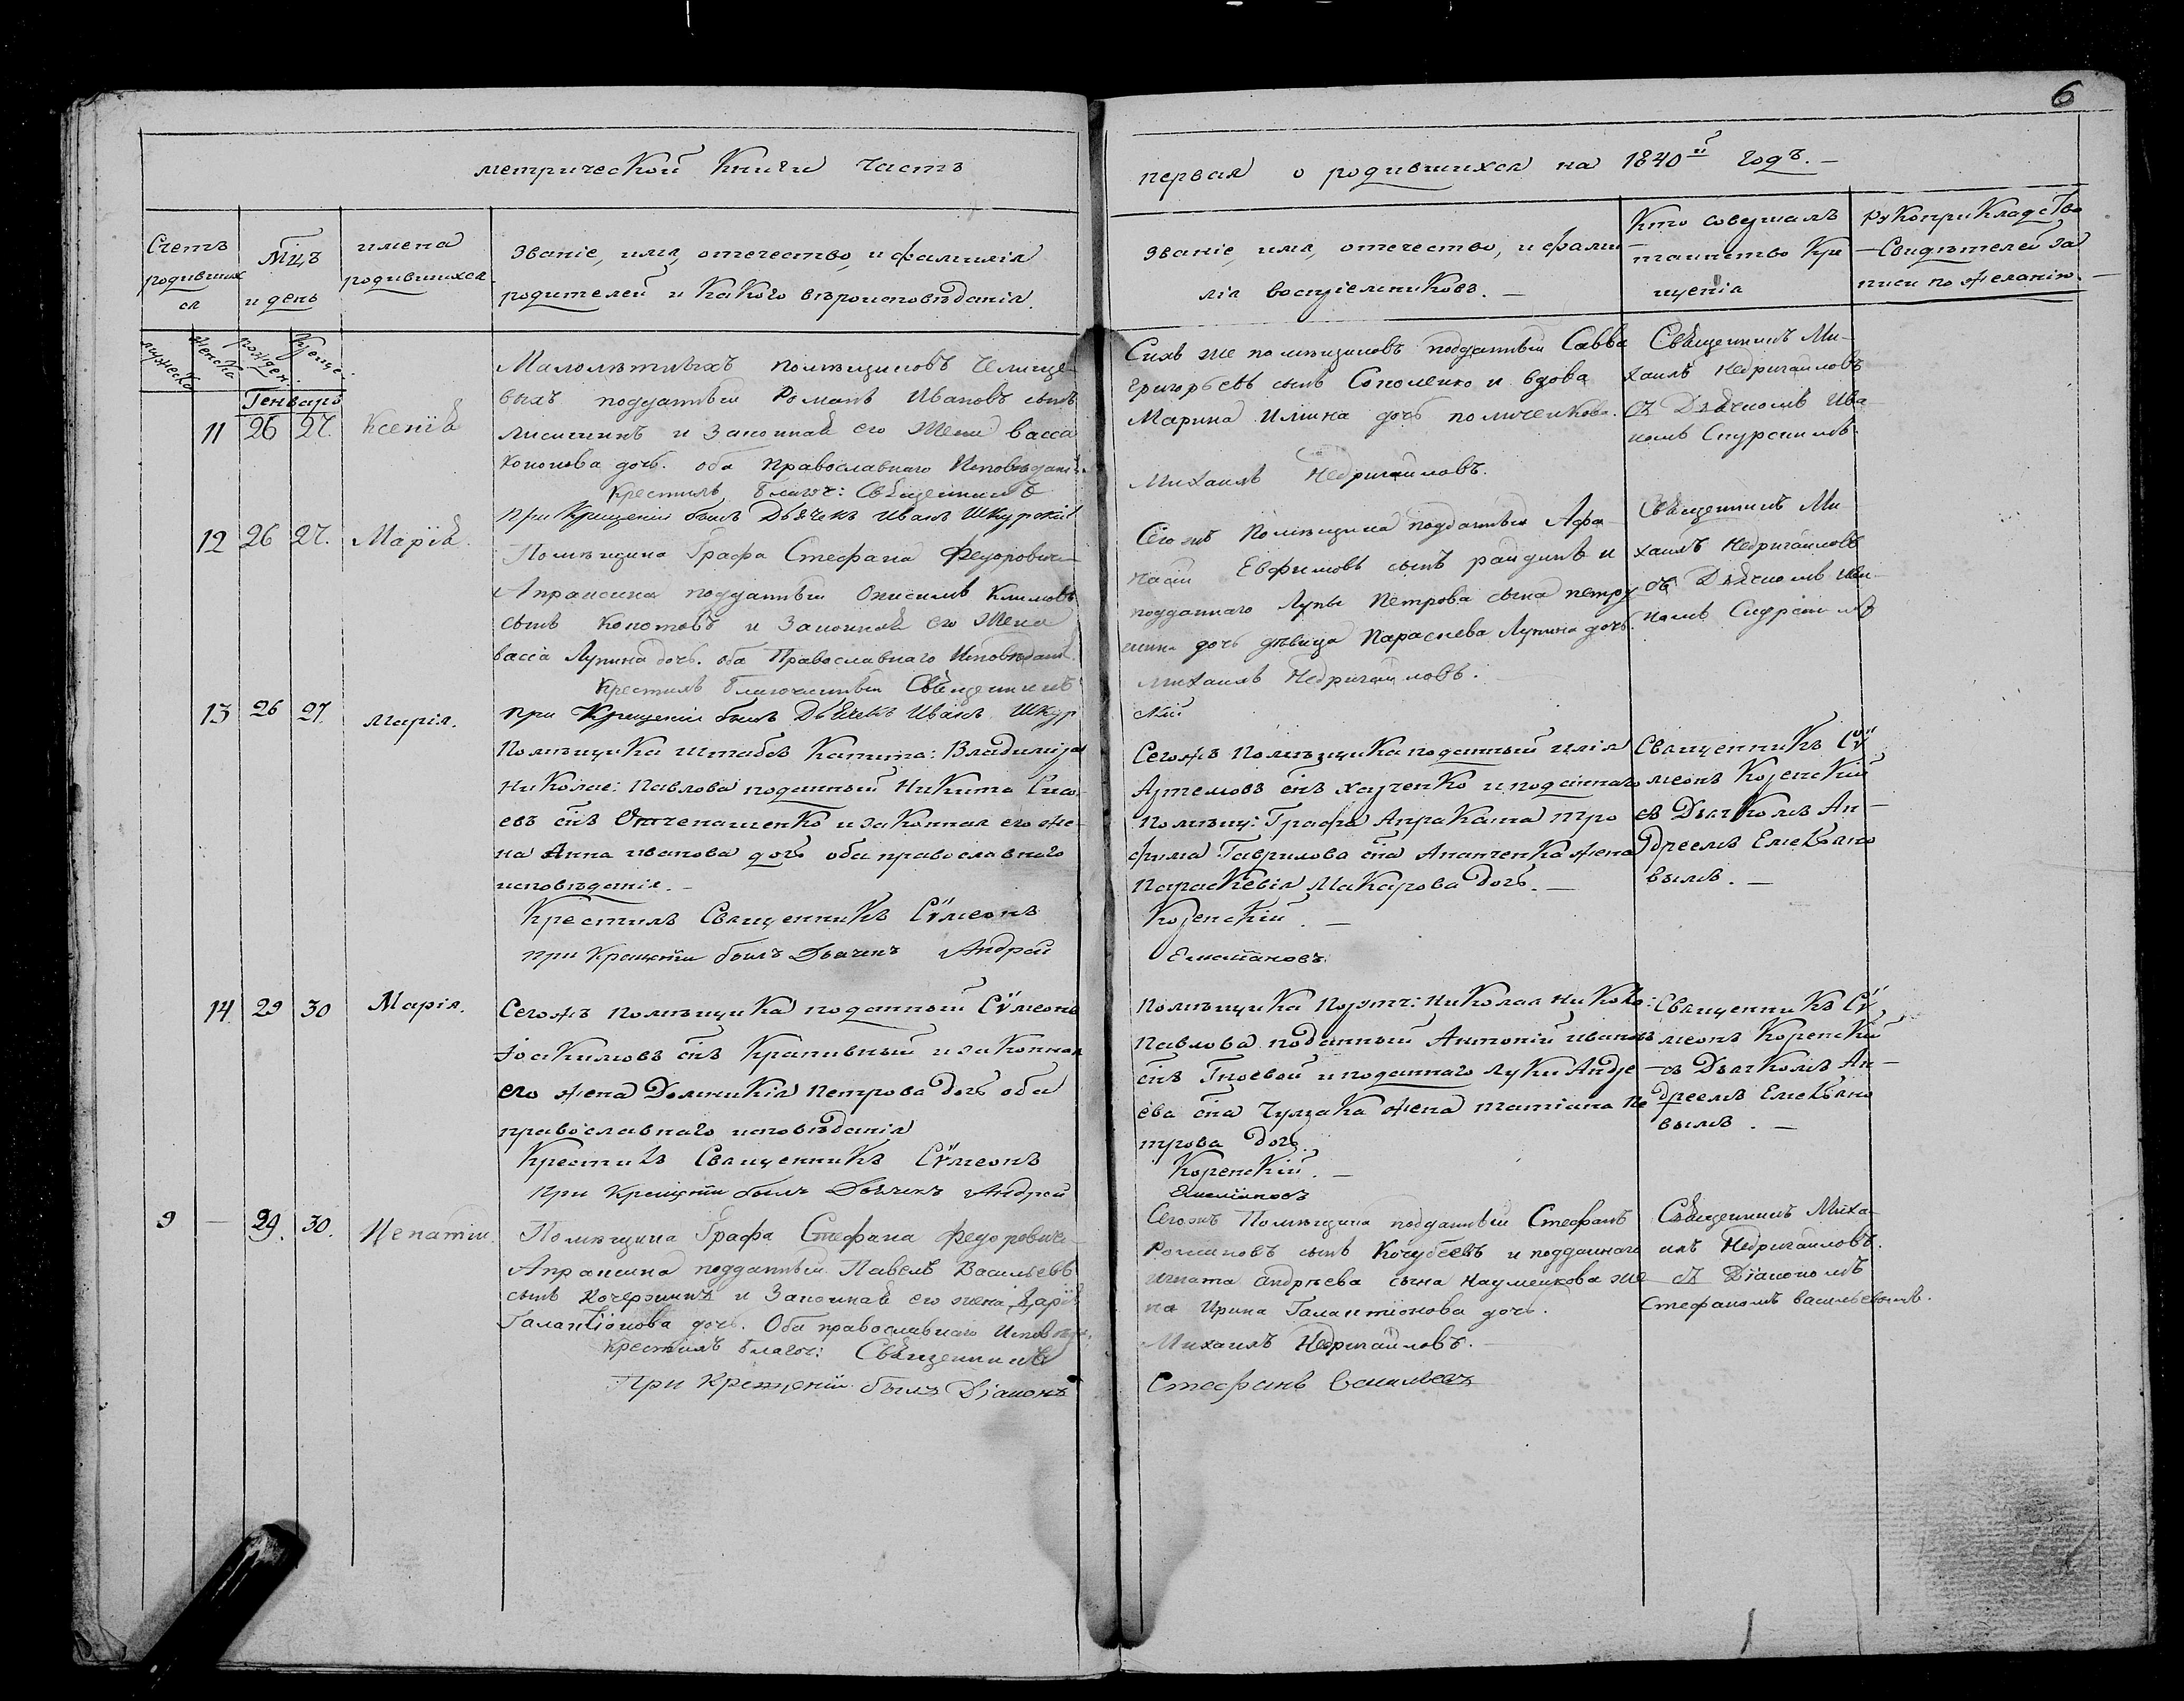 6
метрической Книги Часть
первая о родившихся на 1840й годъ. —
Счетъ родившихся
Мцъ и день
имена родившихся
Званіе, имя, отечество, и фамилія
родителей и Какого вѣроисповѣданія.
Званіе, имя, отечество, и фами
лія воспріемниковъ. —
Кто совершалъ
таинство Кре
щенія
рукоприкладство
Свидѣтелей за
писи по желанію. —
мужеска
женска
рожден.
Креще.
Генварь
11 26 27. Ксенія
Малолѣтныхъ помѣщиковъ Челище
выхъ подданный Романъ Ивановъ сынъ
Лисичинъ и Законная его Жена Васса
Кононова дочь. оба Православнаго Исповѣдані
Крестилъ Благоч: Священникъ
При Крещеніи былъ Дьячекъ Иванъ Шкурскій
Сихъ же помѣщиковъ подданный Савва
Григорьевъ сынъ Сополенко и вдова
Марина Илина дочь
Михаилъ Недригайловъ.
Священникъ Ми-
хаилъ Недригайловъ
съ Дьячкомъ Ива
номъ
12 26 27. Марія.
Помѣщика Графа Стефана Федорович
Апраксина подданный Онисимъ Климовъ
сынъ Копотовъ и Законная его Жена
Васса Лупина дочь. оба Православнаго Исповѣдані
Крестилъ Благочинный Священникъ
при Крещеніи былъ Дьячекъ Иванъ Шкур
скій
Сегожъ Помѣщика подданный Афа
насій Евфимовъ сынъ и
подданнаго Лупы Петрова сына петру
дочь дѣвица Параскева Лупина дочь.
Михаилъ Недригайловъ.
Священникъ Ми
хаилъ Недригайловъ
съ Дьячкомъ Ива
номъ
13 26 27. Марія.
Помѣщика Штабсъ Капита: Владимира
Николае: Павлова поданный Никита
евъ снъ и законная его же
на Анна иванова дочь оба православного
исповѣданія. —
Крестилъ Священникъ Сѵмеонъ
при Крещеніи былъ Дьячекъ Андрей
Сегожъ Помѣщика поданный илія
Артемовъ снъ харченко и поданнаго
Помѣщ: Графа Апраксина Тро
фима Гаврилова сна Ананченка жена
Параскевія Макарова дочь. —
Коренскій. —
Емелiановъ.
Священникъ Сѵ
меонъ Коренскій
съ Дьячкомъ Ан —
дреемъ Емельяно
вымъ. —
14. 29 30 Марія.
Сегожъ помѣщика поданный Сѵмеонъ
Іоакимовъ снъ Крапивный и законная
его жена Домникія Петрова дочь оба
православнаго исповѣданія
Крестилъ Священникъ Сѵмеонъ
При Крещеніи былъ Дьячекъ Андрей
Помѣщика Поруч: Николая Никола:
Павлова поданный Антоній ивановъ
снъ Гноевой и поданнаго Луки Андре
ева сна Чумака жена татіана Пе
трова дочь
Коренскій. —
Емелiановъ
Священникъ Сѵ
меонъ Коренскій
съ Дьячкомъ Ан —
дреемъ Емельяно
вымъ. —
9 — 29. 30. Ипатій.
Помѣщика Графа Стефана Федорович
Апраксина подданный Павелъ Васильевъ
сынъ Кочержинъ и Законная его жена Дарія
Галактіонова дочь. Оба православнаго Исповѣд.
Крестилъ Благоч: Священникъ
При Крещеніи былъ Діаконъ
Сегожъ Помѣщика подданный Стефанъ
Романовъ сынъ Кочубеевъ и подданнаго
Игната Андрѣева сына Науменкова же
на Ирина Галактіонова дочь.
Михаилъ Недригайловъ. —
Стефанъ Васильевъ
Священникъ Миха
илъ Недригайловъ.
съ Діакономъ
Стефаномъ Васильевымъ.